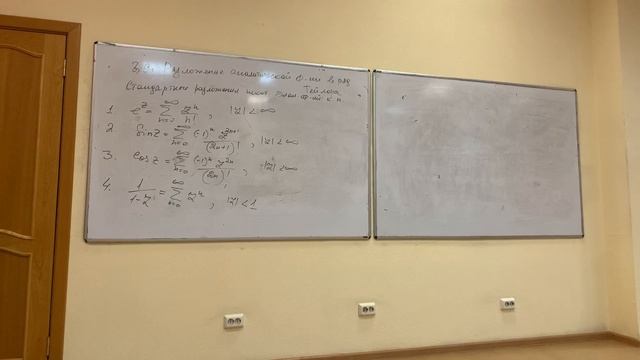 Разложение аналитической ф-ии в ряд
Тейлора
Стандартные разложения
1. e^z = \sum_{n=0}^{\infty} \frac{z^n}{n!}, |z| < ∞
2. Sin z = \sum_{n=0}^{\infty} \frac{(-1)^n z^{2n+1}}{(2n+1)!}, |z| < ∞
3. Cos z = \sum_{n=0}^{\infty} \frac{(-1)^n z^{2n}}{(2n)!}, |z| < ∞
4. \frac{1}{1-z} = \sum_{n=0}^{\infty} z^n, |z| < 1